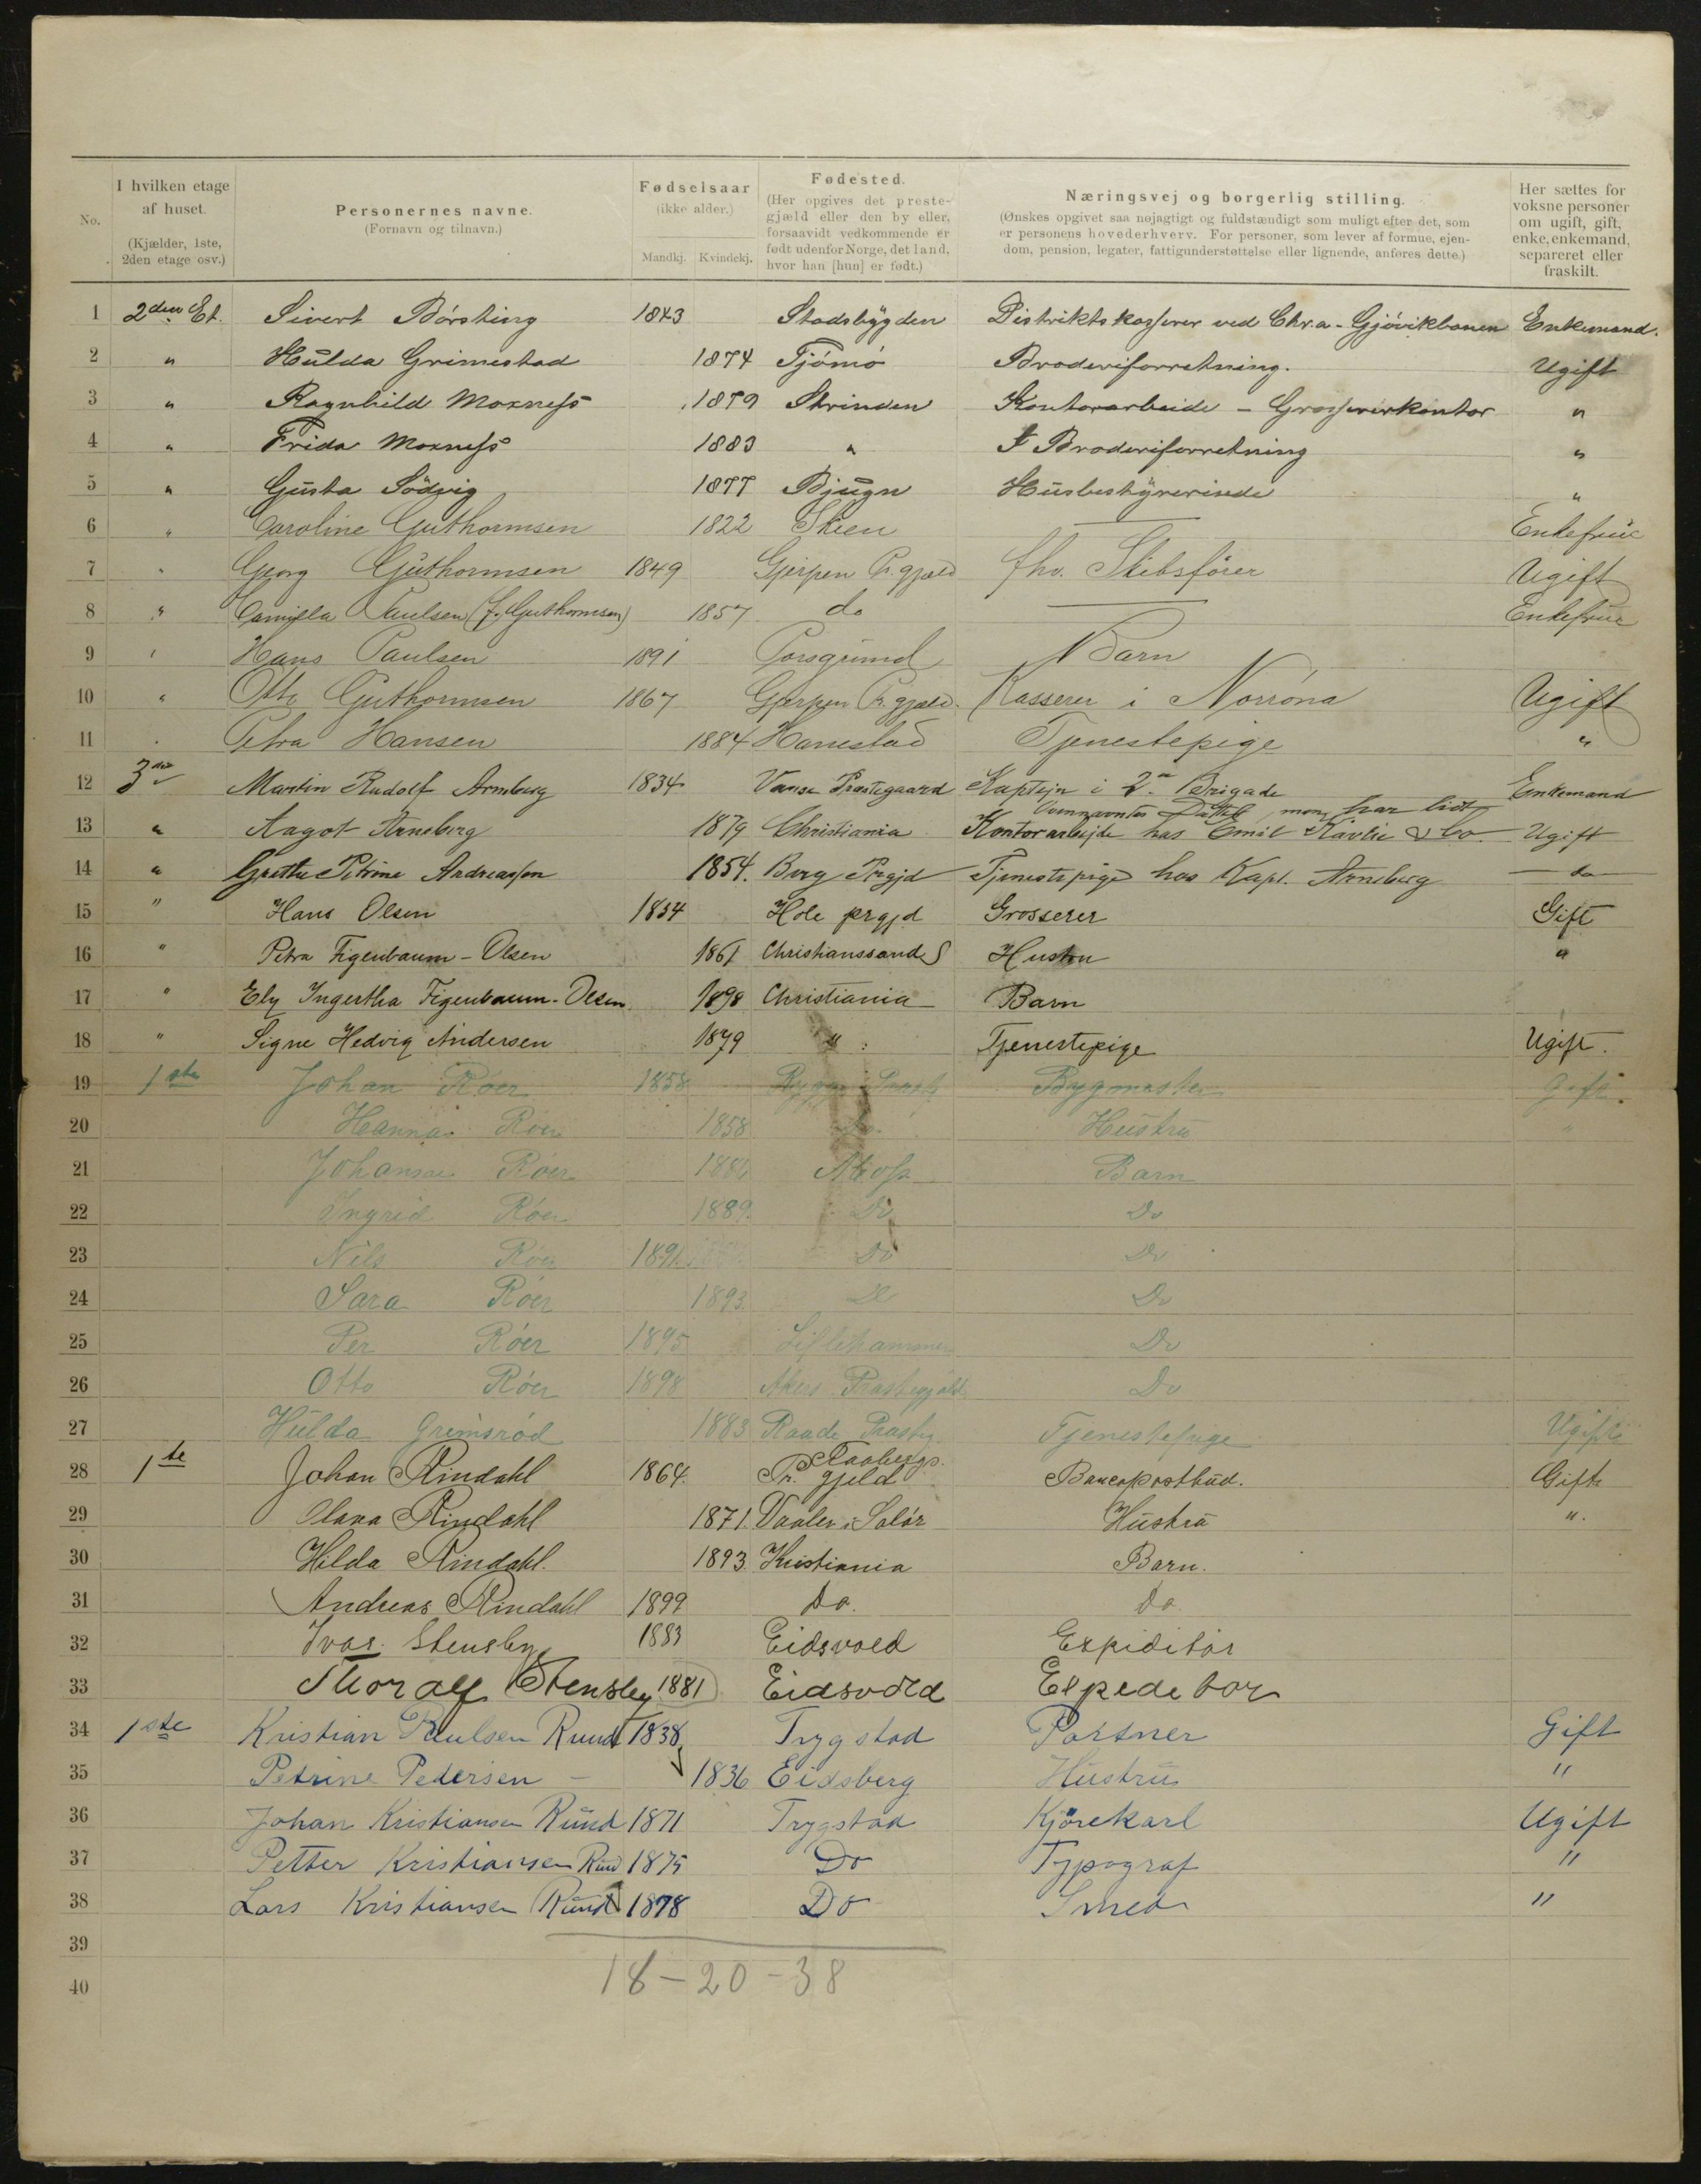 No.
I hvilken etage af huset. (Kjælder, 1ste, 2den etage osv.)
Personernes navne. (Fornavn og tilnavn.)
Fødselsaar (ikke alder.) Mandkj. Kvindekj.
Fødested. (Her opgives det prestegjæld eller den by eller, forsaavidt vedkommende er født udenfor Norge, det land, hvor han [hun] er født.)
Næringsvej og borgerlig stilling. (Ønskes opgivet saa nøjagtigt og fuldstændigt som muligt efter det, som er personens hovederhverv. For personer, som lever af formue, ejendom, pension, legater, fattigunderstøttelse eller lignende, anføres dette.)
Her sættes for voksne personer om ugift, gift, enke, enkemand, separeret eller fraskilt.
1 2den Et. Sivert Børsting 1843 Stadsbygden Distriktskasserer ved Chr.a-Gjøvikbanen Enkemand.
2 " Hulda Grimestad 1874 Tjømø Broderiforretning. Ugift
3 " Ragnhild Moxness 1879 Strinden Kontorarbeide - Grossererkontor "
4 " Frida Moxness 1883 " I Broderiforretning "
5 " Gusta Sødvig 1877 Bjugn Husbestyrerinde "
6 " Caroline Guthormsen 1822 Skien — Enkefrue
7 " Georg Guthormsen 1849 Gjerpen Pr.gjæld fhv. Skibsfører Ugift
8 " Camilla Paulsen (f. Guthormsen) 1857 do — Enkefrue
9 " Hans Paulsen 1891 Porsgrund Barn
10 " Otto Guthormsen 1867 Gjerpen Pr.gjæld. Kasserer i Norrøna Ugift
11 " Petra Hansen 1884 Hanestad Tjenestepige "
12 3die Martin Rudolf Arneberg 1834 Vanse Præstegaard Kaptejn i 2den Brigade Enkemand
13 " Aagot Arneberg 1879 Christiania Kontorarbejde hos Emil & Co. Ugift
14 " Grethe Petrine Andreassen 1854. Berg Prgjd Tjenestepige hos Kapt. Arneberg do
15 " Hans Olsen 1854 Hole prgjd Grosserer Gift
16 " Petra Figenbaum-Olsen 1861 Christianssand S Hustru "
17 " Ely Ingertha Figenbaum-Olsen 1898 Christiania Barn
18 " Signe Hedvig Andersen 1879 " Tjenestepige Ugift.
19 1ste Johan Røer 1858 Rygge Præstg Bygmester Gift.
20 Hanna Røer 1858 Do Hustru "
21 Johanne Røer Moss Barn
22 Ingrid Røer 1889. Do Do
23 Nils Røer 1891 Do Do
24 Sara Røer 1893. Do Do
25 Per Røer 1895 Lillehammer Do
26 Otto Røer 1898 Akers Præstegjæld Do
27 Hulda Grimsrød 1883 Raade Præstg. Tjenestepige Ugift
28 1te Johan Rindahl 1864. Faabergs Pr. gjeld Bancopostbud. Gift
29 Olava Rindahl 1871. Vaaler i Solør Hustru ".
30 Hilda Rindahl. 1893. Kristiania Barn.
31 Andreas Rindahl 1899 Do. Do.
32 Ivar Stensby 1883 Eidsvold Expiditør
33 Thoralf Stensby 1881 Eidsvold Expeditør
34 1ste Kristian Paulsen Rund 1838 Trygstad Portner Gift
35 Petrine Pedersen — 1836 Eidsberg Hustru "
36 Johan Kristiansen Rund 1871 Trygstad Kjørekarl Ugift
37 Petter Kristiansen Rund 1875 Do Typograf "
38 Lars Kristiansen Rund 1878 Do Smed "
39
40
18-20-38